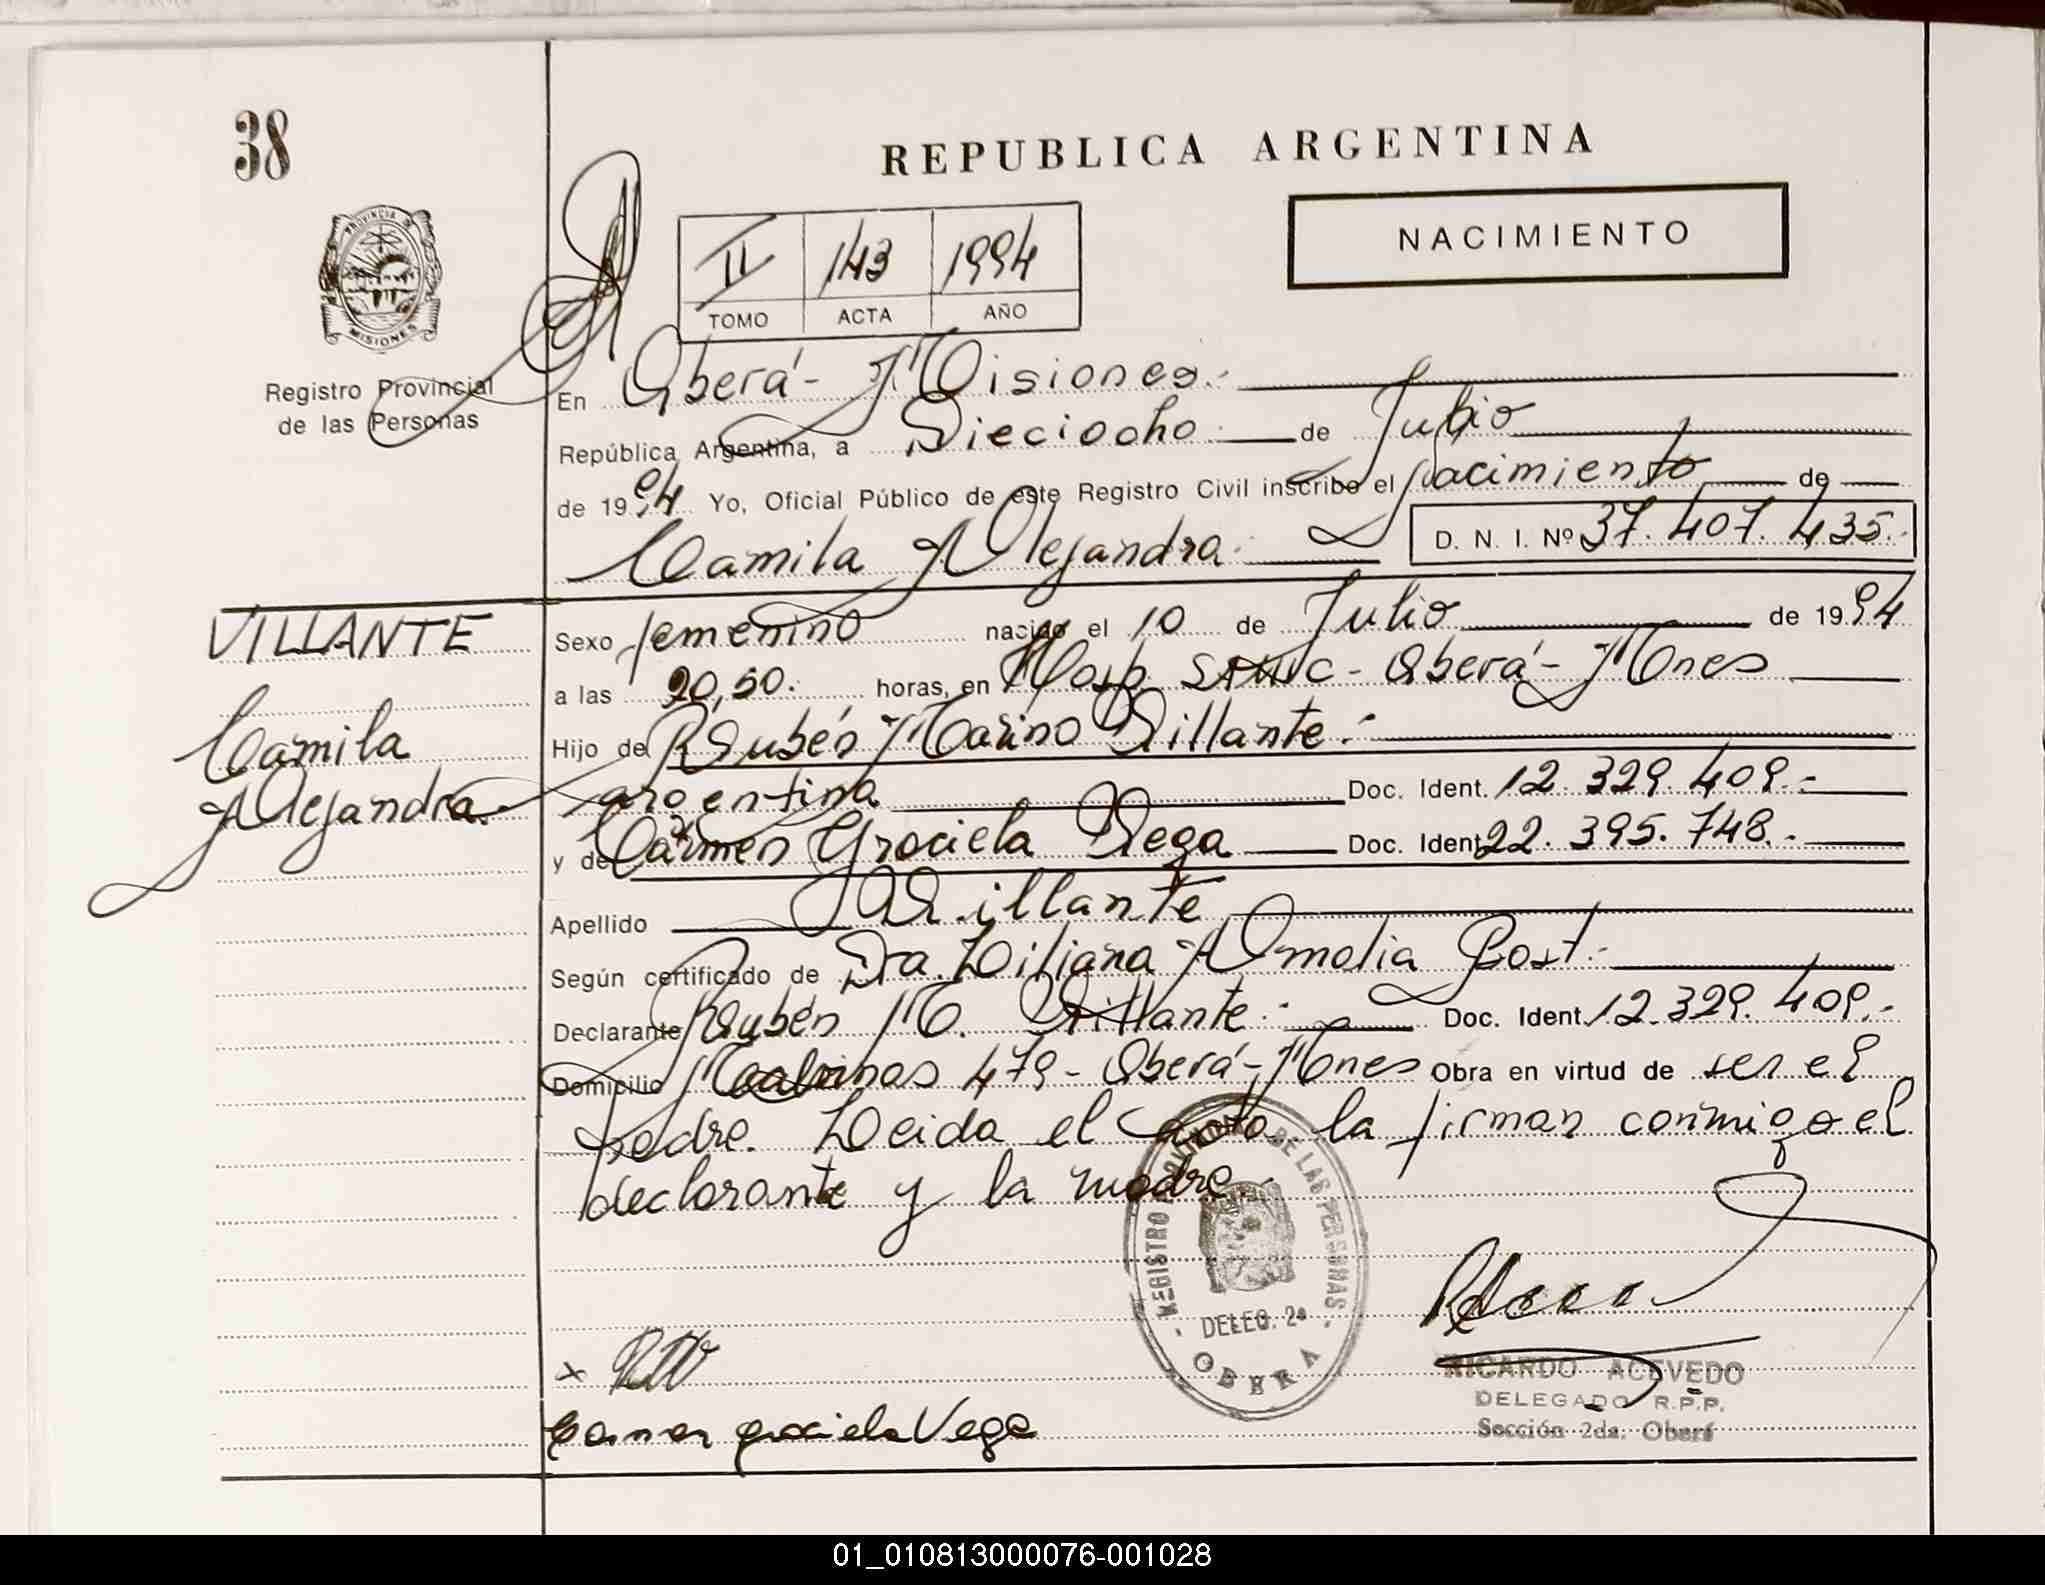 38
REPUBLICA ARGENTINA
NACIMIENTO
PROVINCIA DE
MISIONES
Registro Provincial
de las Personas
II 143 1994
TOMO ACTA AÑO
En Oberá - Misiones.-
República Argentina, a Dieciocho de Julio
de 1994 Yo, Oficial Público de este Registro Civil inscribo el Nacimiento de
Camila Alejandra.- D. N. I. Nº 37.407.435.-
VILLANTE
Camila
Alejandra.
Sexo femenino nacido el 10 de Julio de 1994
a las 20,50. horas, en Hosp. SAMIC - Oberá - Mnes
Hijo de Rubén Marino Villante.-
argentina Doc. Ident. 12.329.409.-
y de Carmen Graciela Vega Doc. Ident. 22.395.748.-
Apellido Villante
Según certificado de Dra. Liliana Amalia Post.-
Declarante Rubén M. Villante.- Doc. Ident. 12.329.409.-
Domicilio Malvinas 479 - Oberá - Mnes Obra en virtud de ser el
padre. Leida el acta la firman conmigo el
declarante y la madre.-
REGISTRO PROVINCIAL DE LAS PERSONAS
DELEG. 2ª
OBERA
RICARDO ACEVEDO
DELEGADO R.P.P.
Sección 2da. Oberá
x
Carmen graciela Vega
01_010813000076-001028